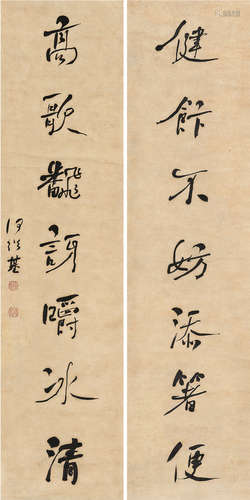 健飰不妨添箸便
高歌飜訝嚼冰清
何紹基